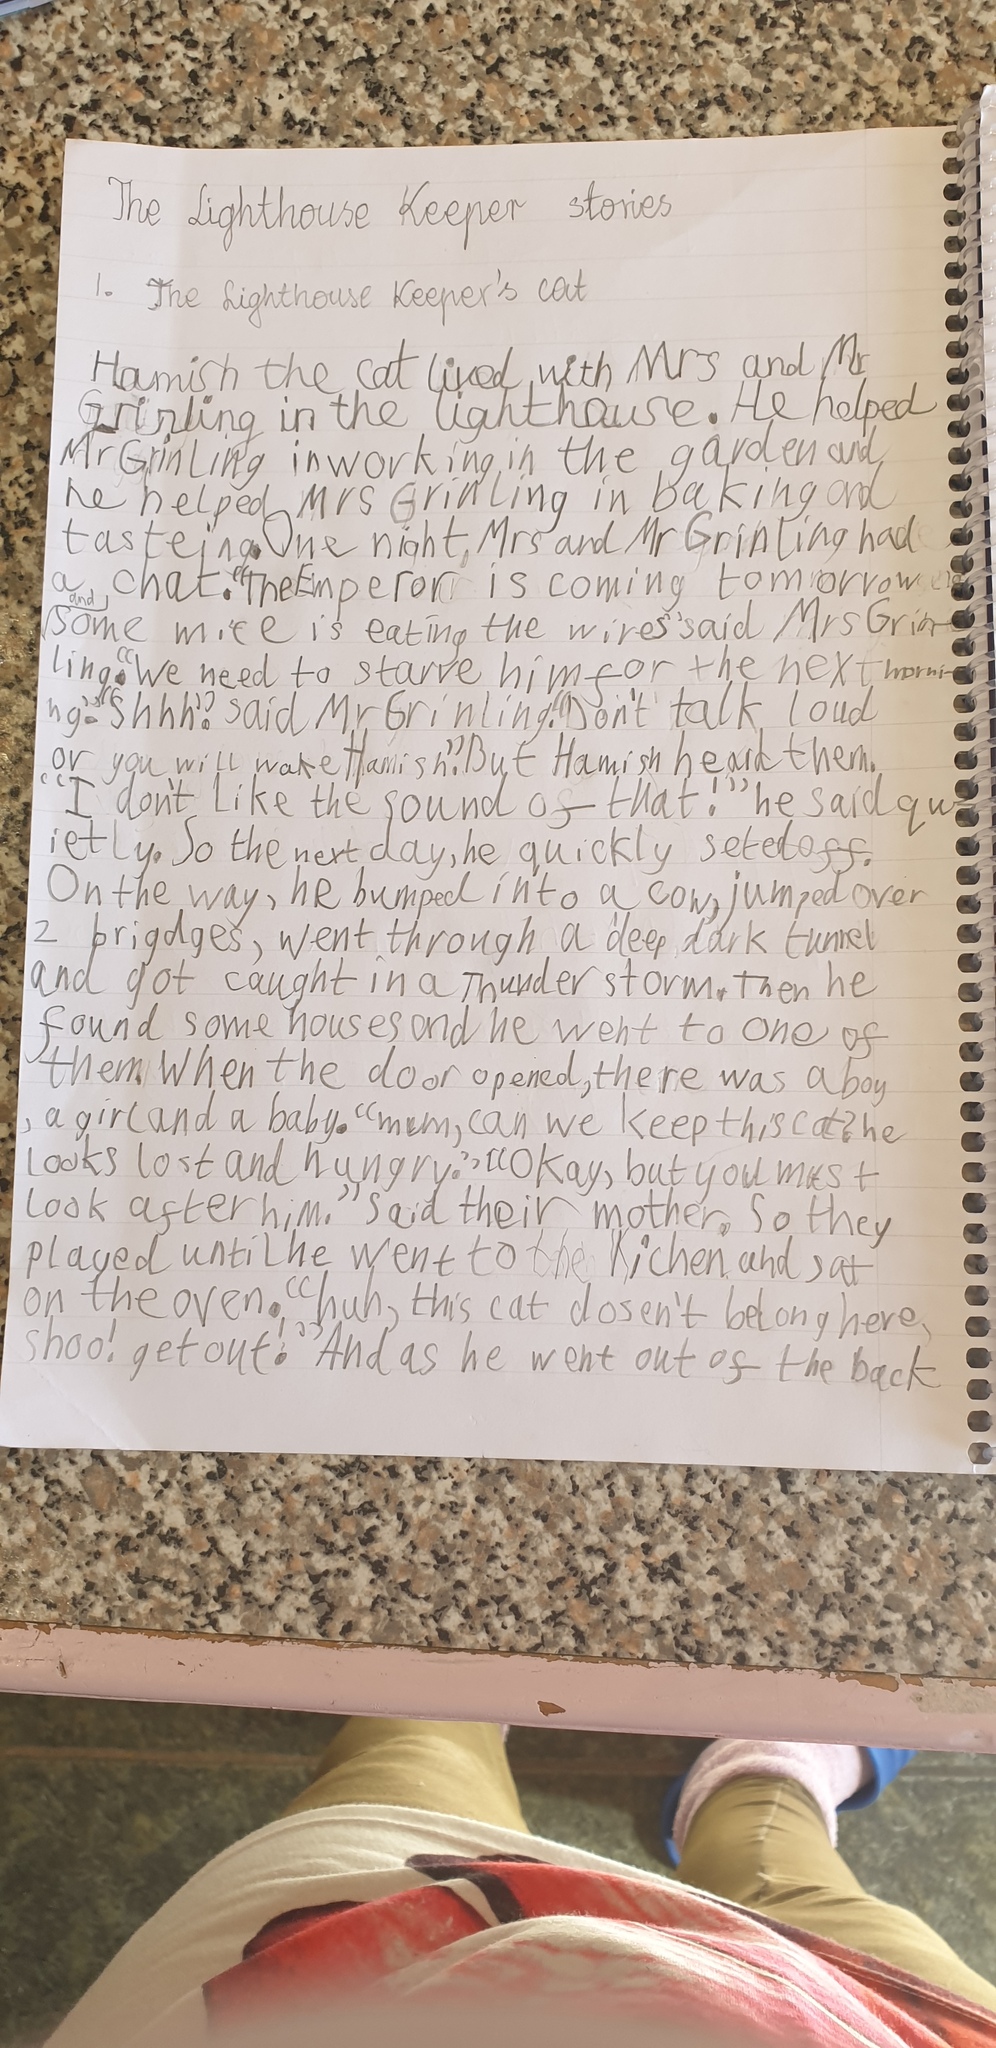 The Lighthouse Keeper stories
1. The Lighthouse Keeper's cat
Hamish the cat lived with Mrs and Mr
Grinling in the lighthouse. He helped
Mr Grinling in working in the garden and
he helped Mrs Grinling in baking and
tasteing. One night, Mrs and Mr Grinling had
a chat. "The Emperor is coming tomorrow
and
some mice is eating the wires" said Mrs Grin-
ling. "We need to starve him for the next morni-
ng." "Shhh" said Mr Grinling. "Don't talk loud
or you will wake Hamish". But Hamish heard them.
"I don't like the sound of that!" he said qu
ietly. So the next day, he quickly seted off.
On the way, he bumped into a cow, jumped over
2 brigdges, went through a deep dark tunnel
and got caught in a Thunder storm. Then he
found some houses and he went to one of
them. When the door opened, there was a boy
, a girl and a baby. "mum, can we keep this cat? he
looks lost and hungry." "Okay, but you must
look after him." Said their mother. So they
played until he went to the Kichen and sat
on the oven. "huh, this cat dosen't belong here,
shoo! get out!" And as he went out of the back